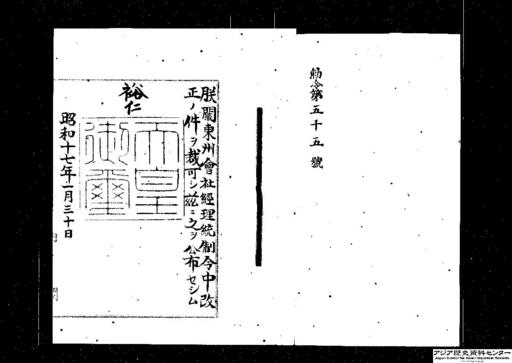 勅令第五十五號
朕關東州會社經理統制令中改
正ノ件ヲ裁可シ茲ニ之ヲ公布セシム
裕仁
天皇
御璽
昭和十七年一月三十日
アジア歴史資料センター
Japan Center for Asian Historical Records